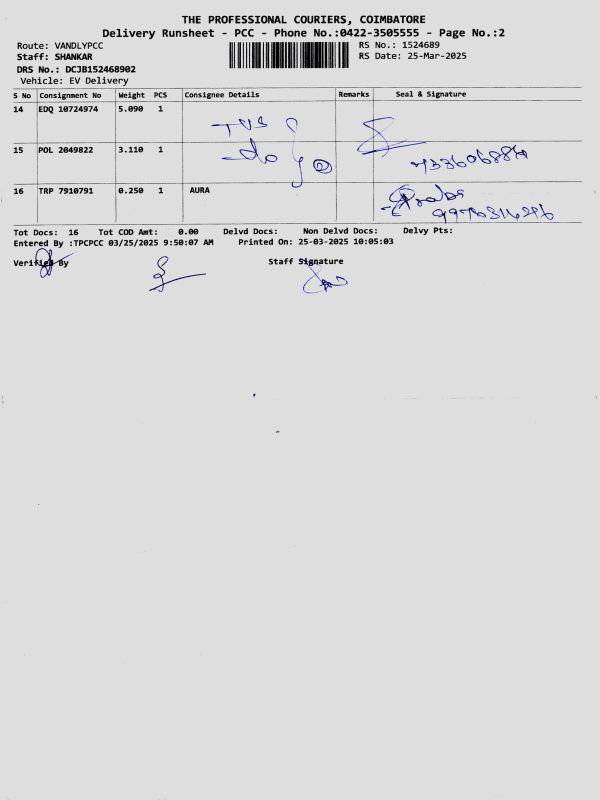 THE PROFESSIONAL COURIERS, COIMBATORE
Delivery Runsheet - PCC - Phone No.:0422-3505555 - Page No.:2
Route: VANDLYPCC
RS No.: 1524689
Staff: SHANKAR
RS Date: 25-Mar-2025
DRS No.: DCJB152468902
Vehicle: EV Delivery
S No Consignment No Weight PCS Consignee Details Remarks Seal & Signature
14 EDQ 10724974 5.090 1 TVS
15 POL 2049822 3.110 1 do
16 TRP 7910791 0.250 1 AURA
Tot Docs: 16 Tot COD Amt: 0.00 Delvd Docs: Non Delvd Docs: Delvy Pts:
Entered By :TPCPCC 03/25/2025 9:50:07 AM Printed On: 25-03-2025 10:05:03
Verified By Staff Signature